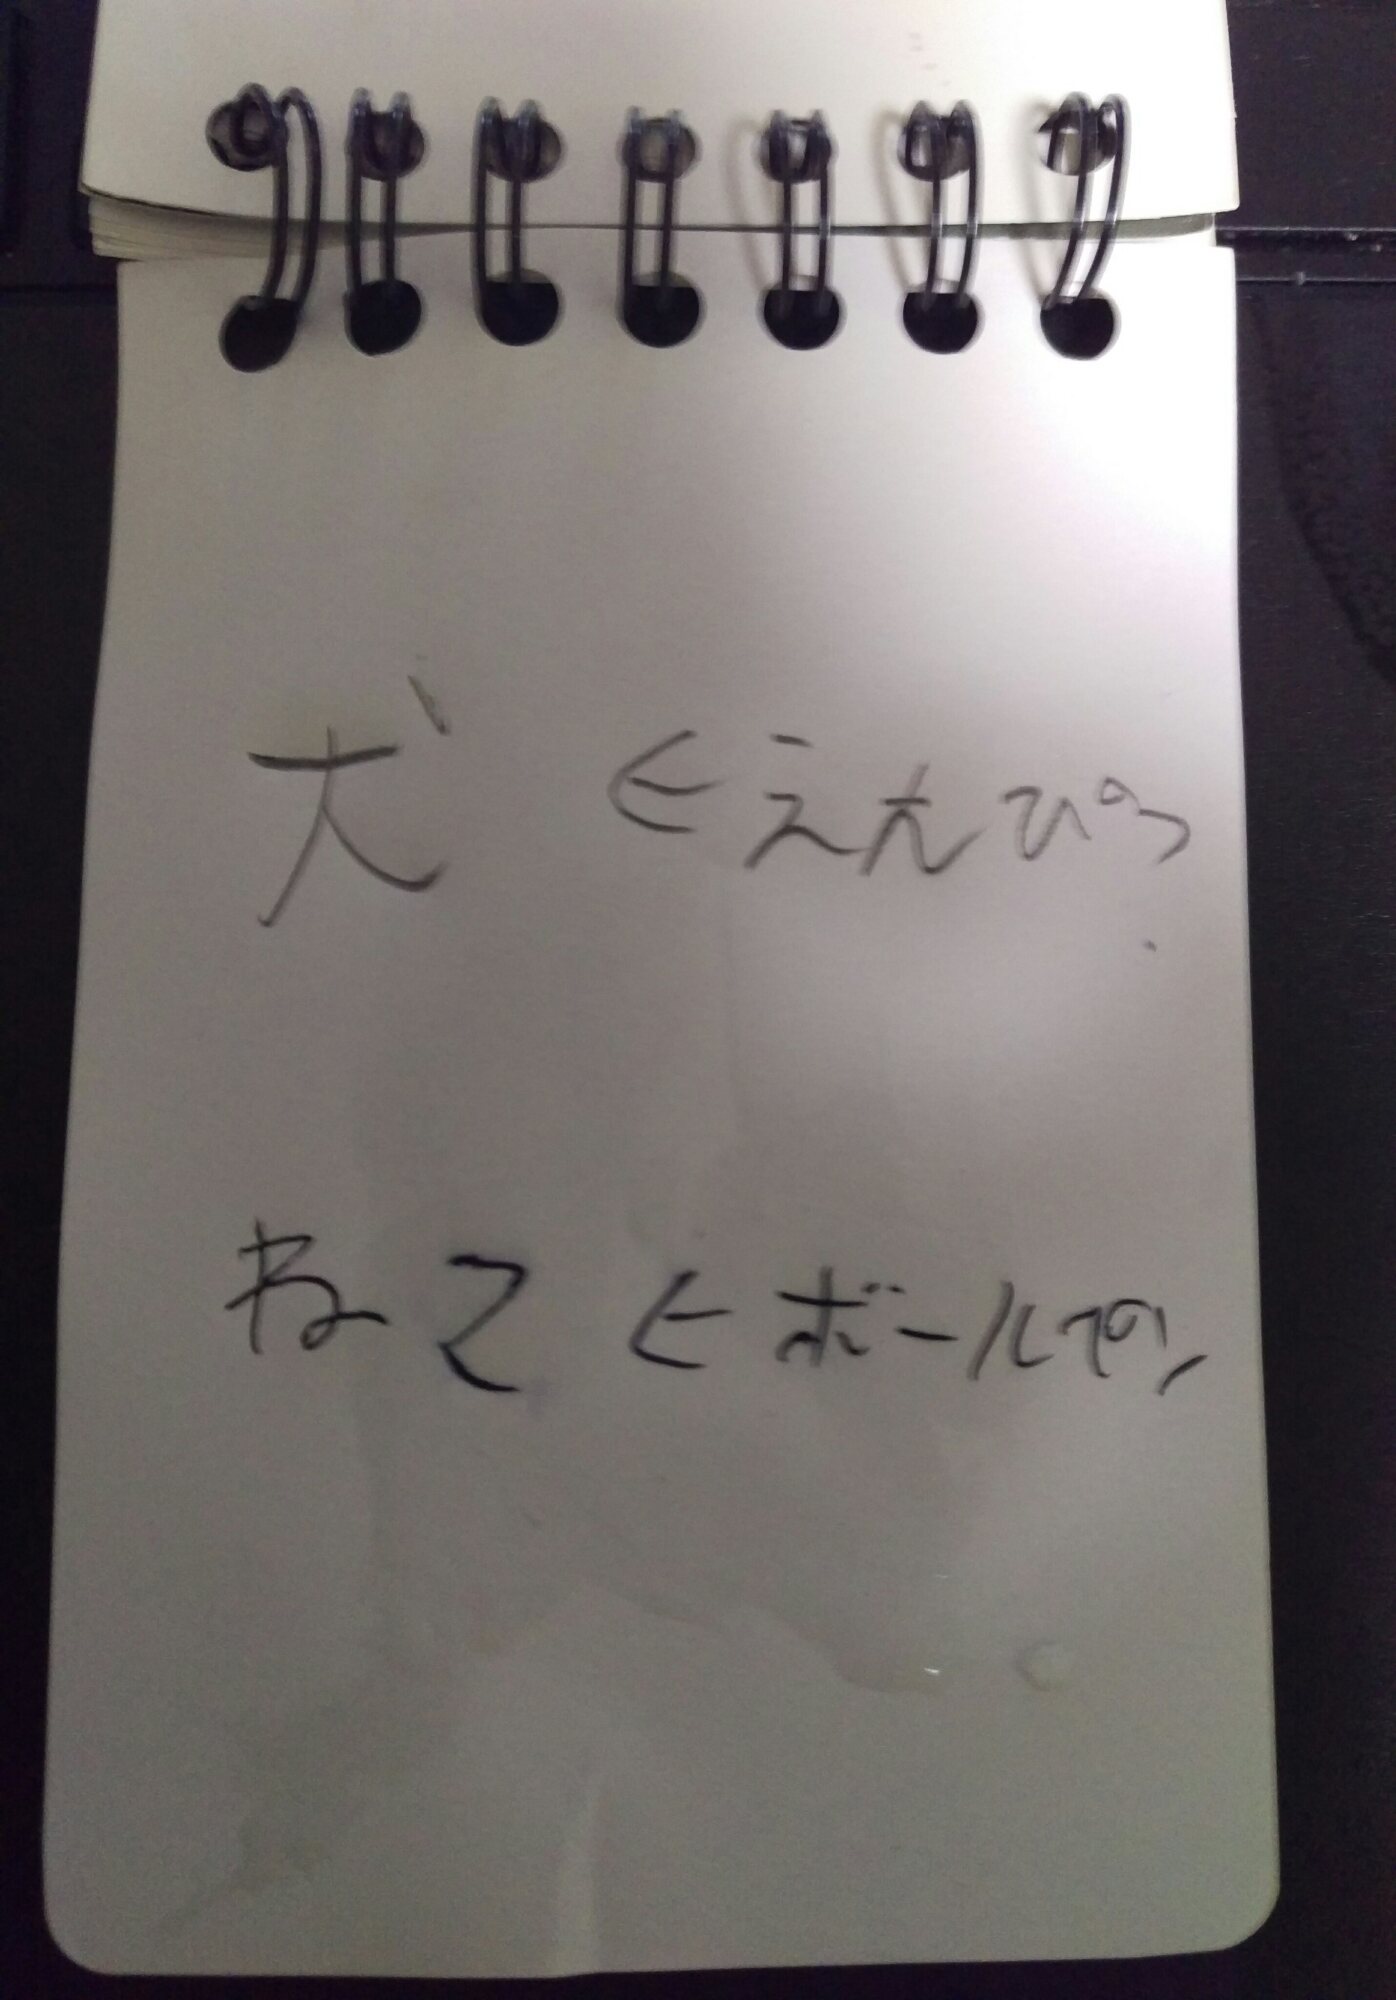 犬 ←えんぴつ
ねこ ←ボールペン